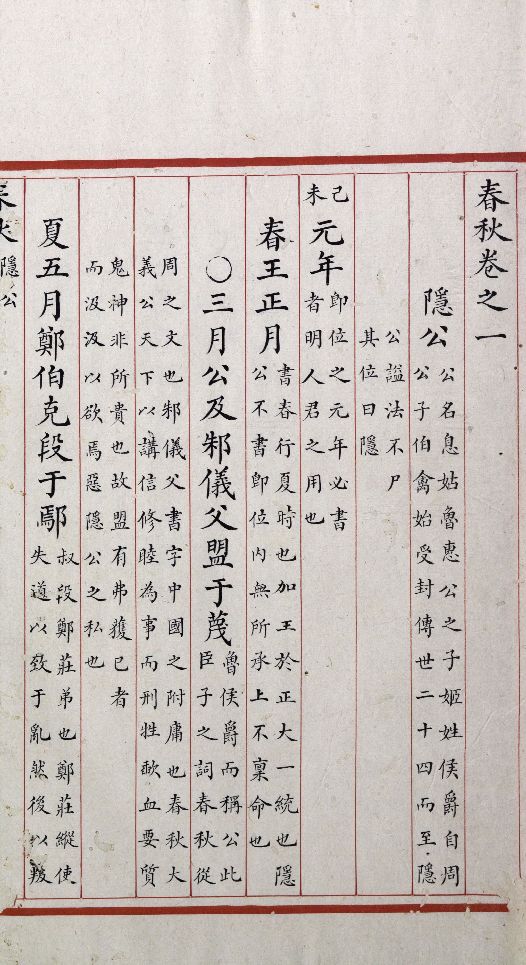 春秋卷之一
隱公
公名息姑魯惠公之子姬姓侯爵自周
公子伯禽始受封傳世二十四而至隱
公謚法不尸
其位曰隱
己未
元年
即位之元年必書
者明人君之用也
春王正月
書春行夏時也加王於正大一統也隱
公不書即位內無所承上不稟命也
〇三月公及邾儀父盟于蔑
魯侯爵而稱公此
臣子之詞春秋從
周之文也邾儀父書字中國之附庸也春秋大
義公天下以講信修睦為事而刑牲歃血要質
鬼神非所貴也故盟有弗獲已者
而汲汲以欲焉惡隱公之私也
夏五月鄭伯克段于鄢
叔段鄭莊弟也鄭莊縱使
失道以致于亂然後以叛
隱公